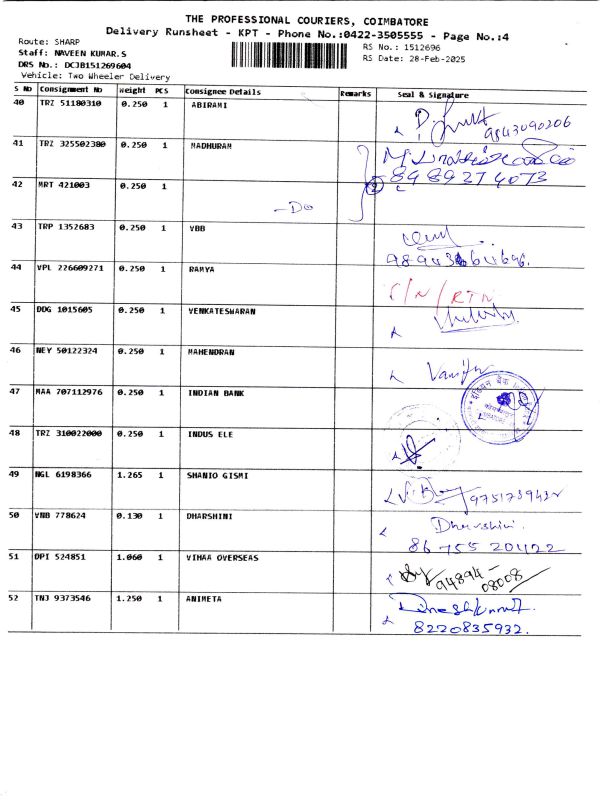 THE PROFESSIONAL COURIERS, COIMBATORE
Delivery Runsheet - KPT - Phone No.:0422-3505555 - Page No.:4
Route: SHARP
RS No.: 1512696
Staff: NAVEEN KUMAR.S
RS Date: 28-Feb-2025
DRS No.: DCJB151269604
Vehicle: Two Wheeler Delivery
S No Consignment No Weight PCS Consignee Details Remarks Seal & Signature
40 TRZ 51180310 0.250 1 ABIRAMI
9843090206
41 TRZ 325502380 0.250 1 MADHURAM
8489274073
42 MRT 421003 0.250 1
-Do
43 TRP 1352683 0.250 1 VBB
44 VPL 226609271 0.250 1 RAMYA
C/N/RTN
45 DDG 1015605 0.250 1 VENKATESWARAN
46 NEY 50122324 0.250 1 MAHENDRAN
47 MAA 707112976 0.250 1 INDIAN BANK
48 TRZ 310022000 0.250 1 INDUS ELE
49 NGL 6198366 1.265 1 SHANIO GISMI
9751739432
50 VNB 778624 0.130 1 DHARSHINI
Dharshini
86 755 201122
51 DPI 524851 1.060 1 VIHAA OVERSEAS
94894-
08008
52 TNJ 9373546 1.250 1 ANIMETA
Dineshkumar
8220835932